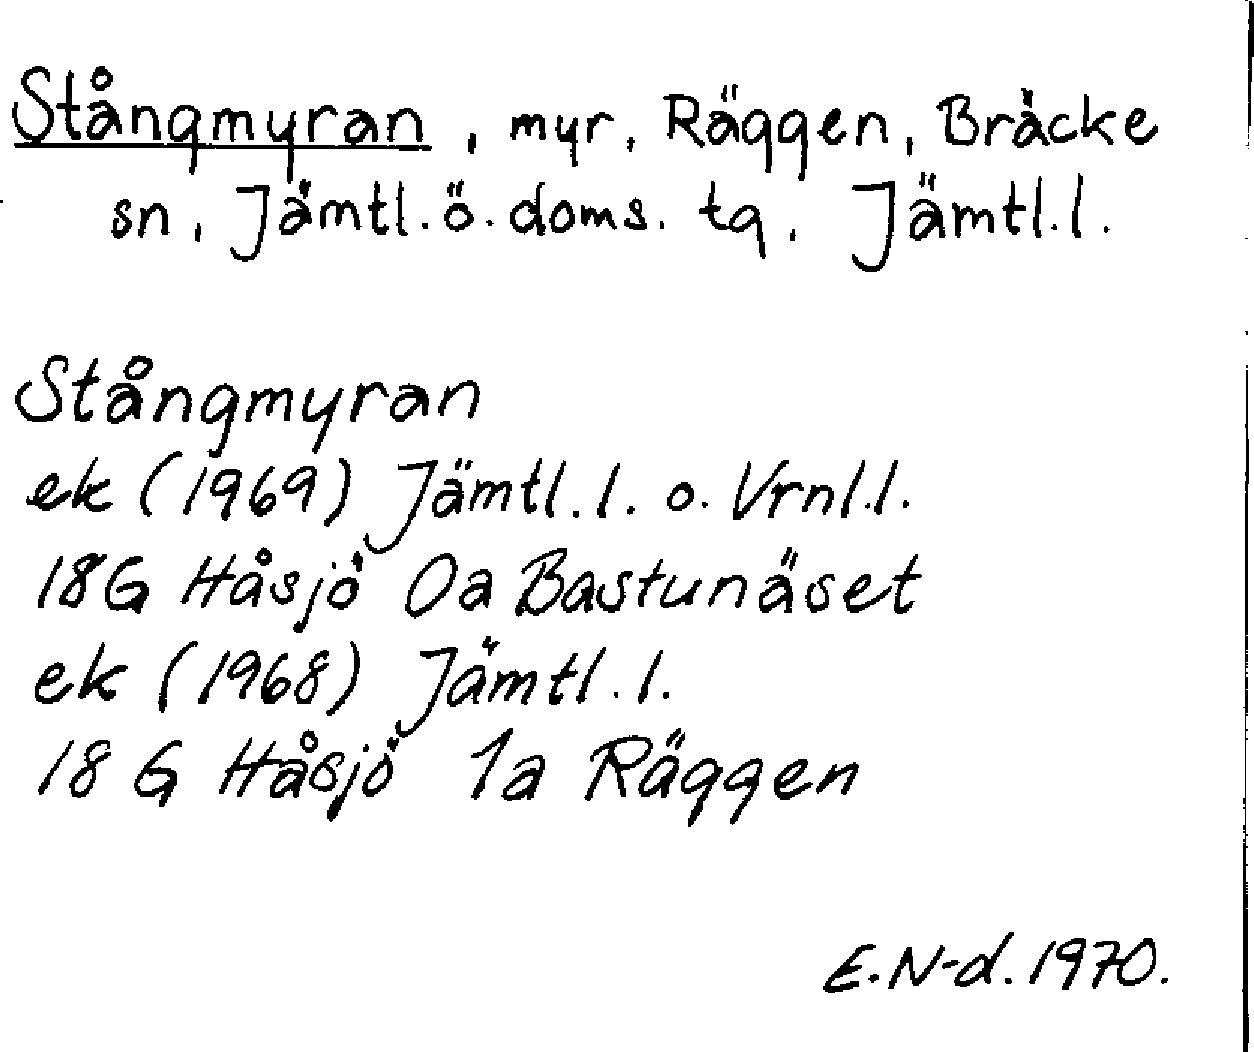 Stångmyran, myr, Räggen, Bräcke
sn, Jämtl. ö. doms. tg, Jämtl. l.
Stångmyran
ek (1969) Jämtl. l. o. Vrnl. l.
18G Håsjö 0a Bastunäset
ek (1968) Jämtl. l.
18 G Håsjö 1a Räggen
E. N-d. 1970.